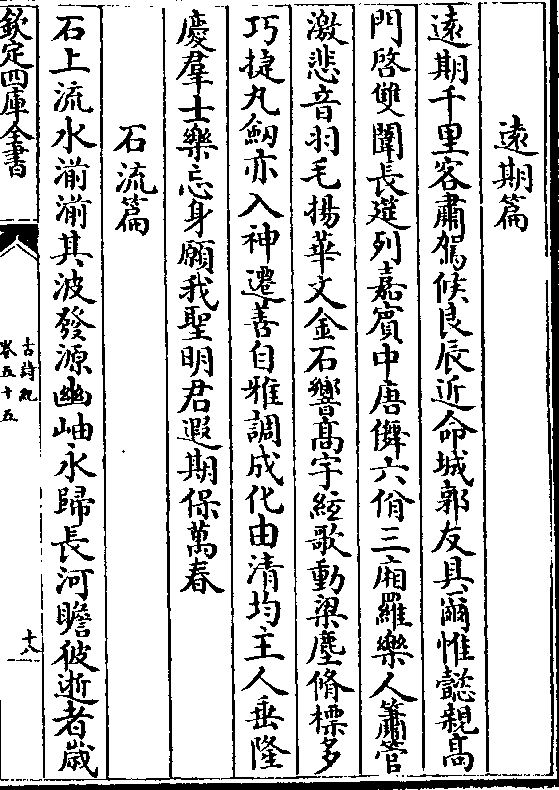 遠期篇
遠期千里客肅駕候良辰近命城郭友具爾惟懿親高
門啓雙闈長筵列嘉賓中唐儛六佾三廂羅樂人簫管
激悲音羽毛揚華文金石響高宇絃歌動梁塵脩標多
巧捷丸劒亦入神遷善自雅調成化由清均主人垂隆
慶羣士樂忘身願我聖明君遐期保萬春
石流篇
石上流水湔湔其波發源幽岫永歸長河瞻彼逝者歲
欽定四庫全書
古詩紀
卷五十五
十八